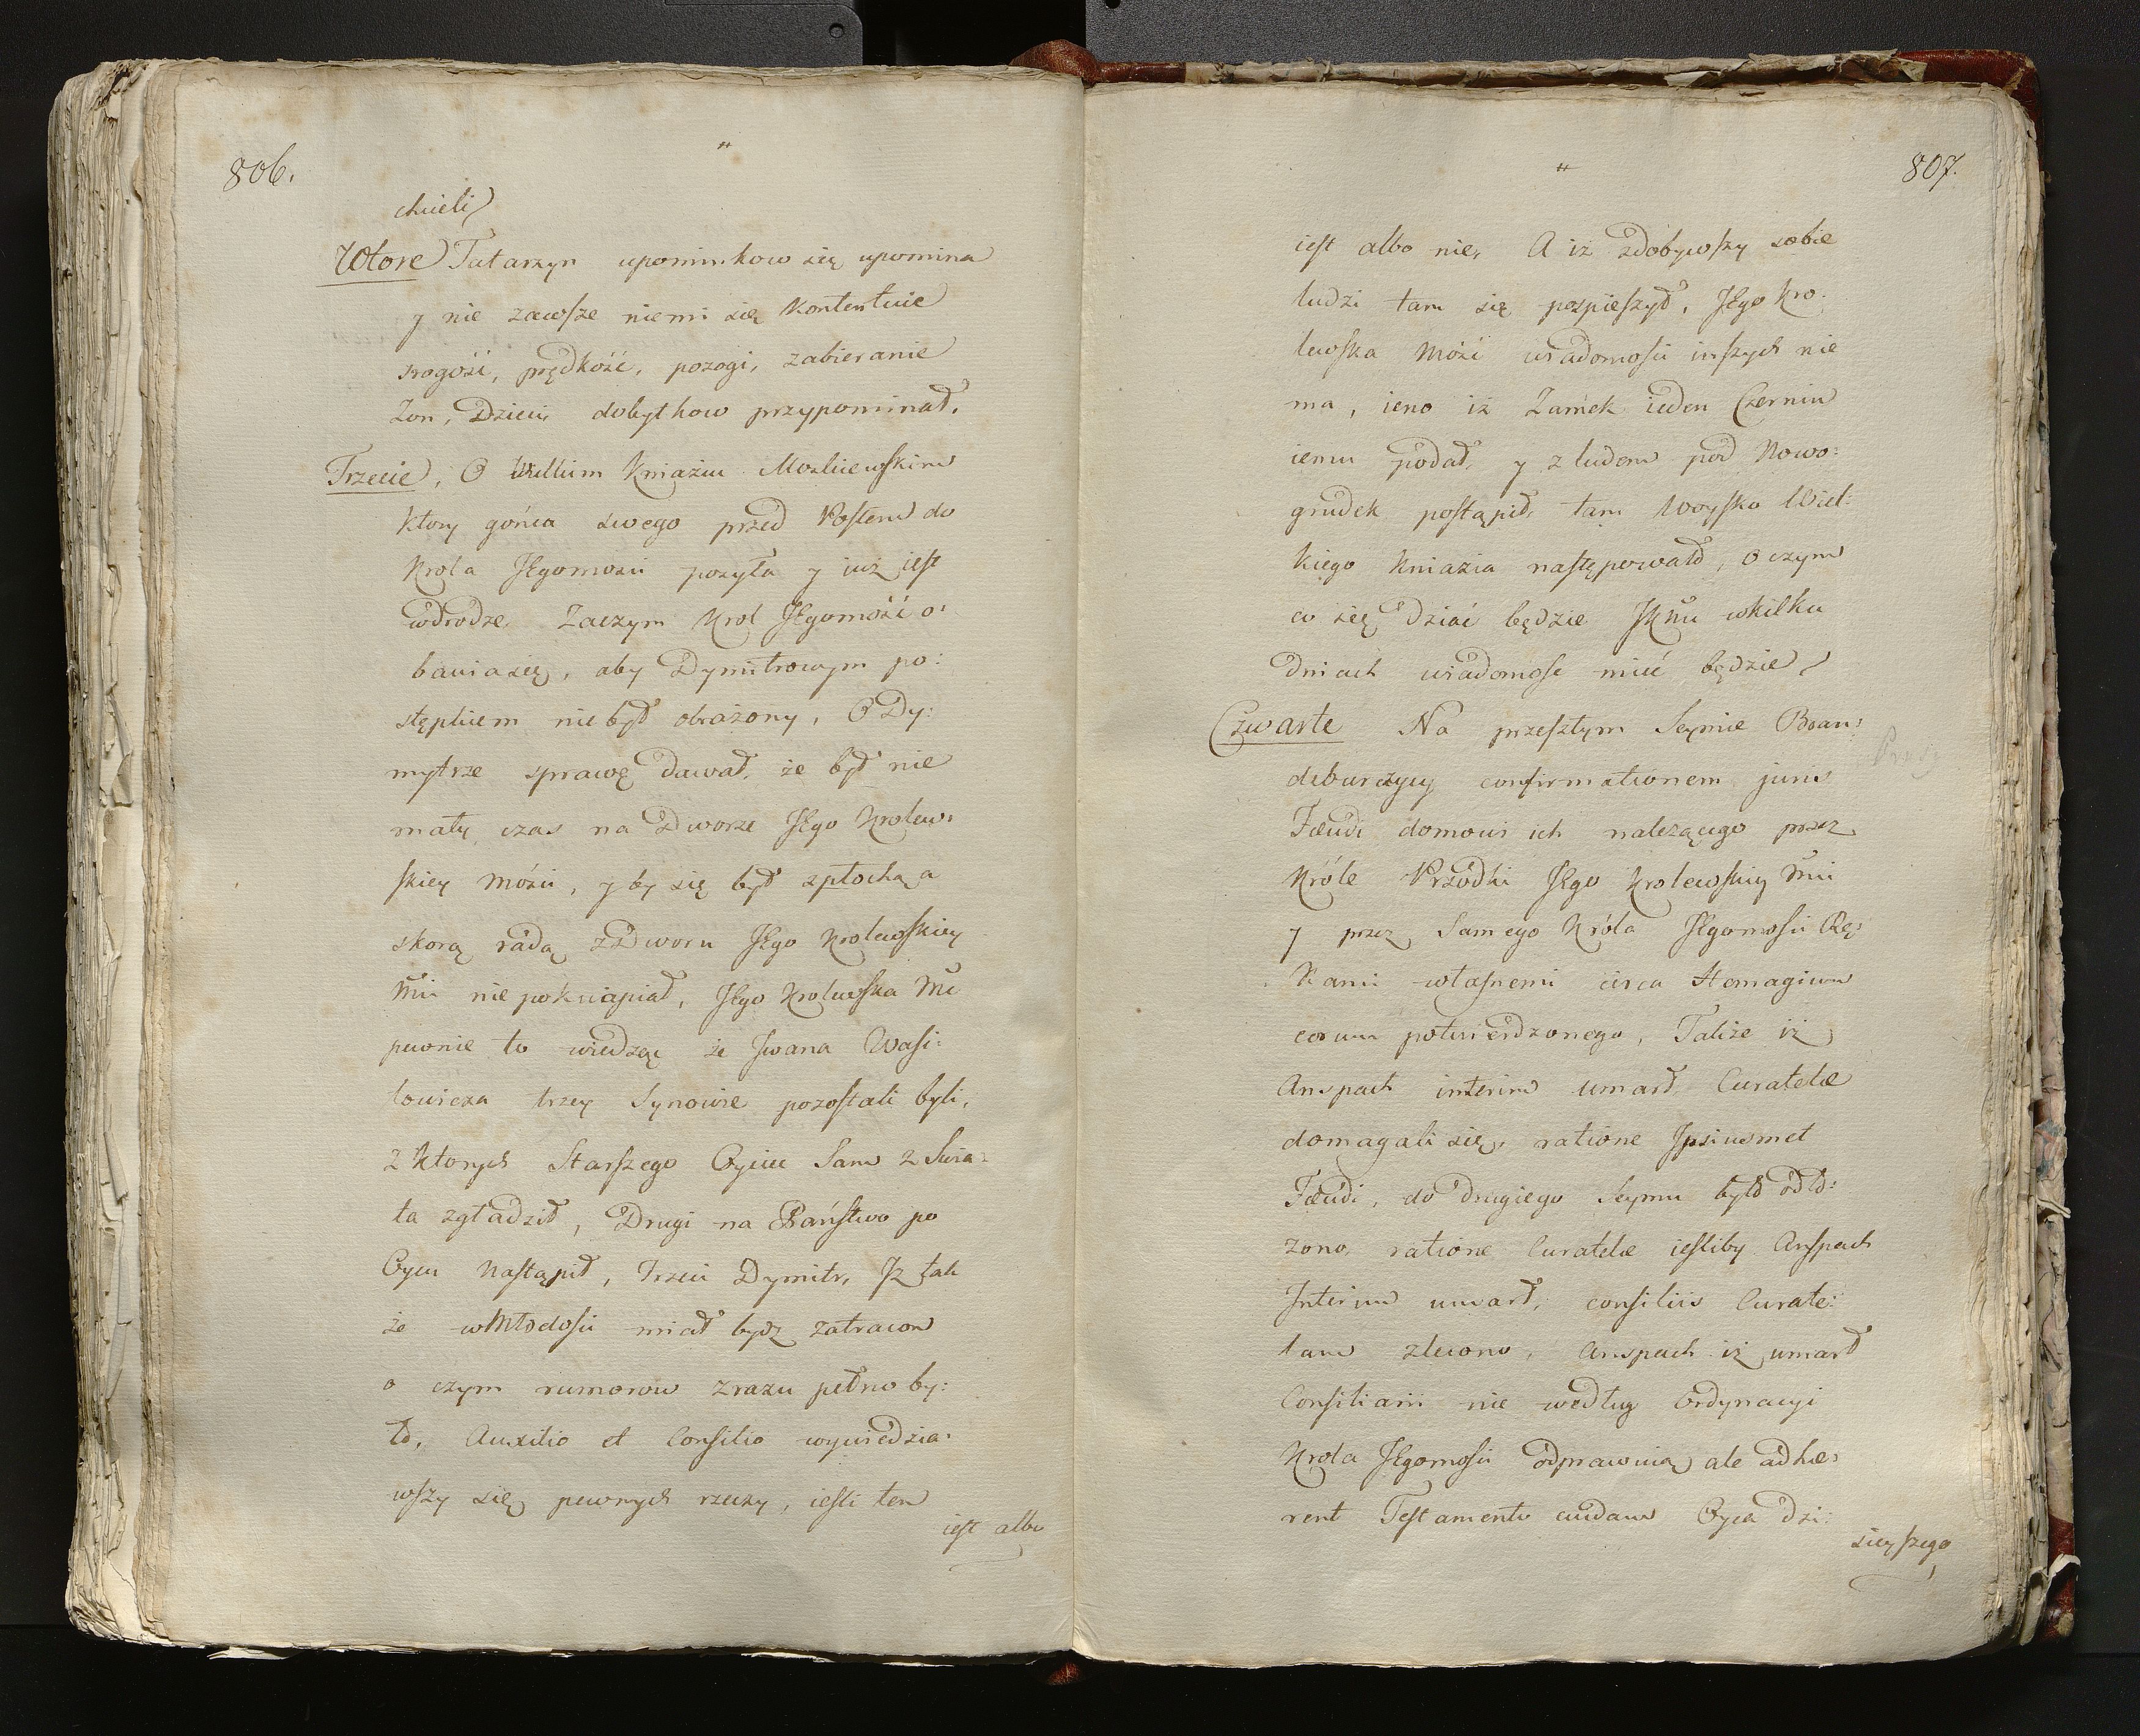 806.
chcieli
Wtore Tatarzyn upominkow się upomina
y nie zawsze niemi się kontentuie
srogość, prędkość, pozogi, zabieranie
Zon, Dzieci, dobytkow przypominał.
Trzecie, O Wielkim Kniaziu Moskiewskim
ktory gońca swego przed Postem do
Krola JEgomosci posyła y iuż iest
wdrodze. Zaczym Krol JEgomość o:
bawia się, aby Dymitrowym po:
stępkiem nie był obrażony, O Dy:
mytrze sprawę dawał, że był nie
mały czas na Dworze JEgo Krolew:
skiey Mości, y by się był z płochą a
skorą radą z Dworu JEgo Krolewskiey
Mci nie pokwapiał, JEgo Krolewska Mć
pewnie to wiedzą że Jwana Wasi:
lowicza trzey Synowie pozostali byli,
z ktorych Starszego Oyciec Sam z Swia:
ta zgładził, Drugi na Państwo po
Oycu nastąpił, Trzeci Dymitr, Jż tak
że w Młodosci miał bydź zatracon
o czym rumorow zrazu pełno by:
ło, Auxilio et Consilio wywiedzia:
wszy się pewnych rzeczy, iesli ten
iest albo
807.
iest albo nie, A iż zdobywszy sobie
ludzi tam się pospieszył, JEgo Kro:
lewska Mość wiadomosci inszych nie
ma, ieno iż Zamek ieden Czerniu
iemu podał, y z ludem pod Nowo:
grudek postąpił, tam Woysko Wiel:
kiego Kniazia następowało, o czym
co się dziać będzie JKMci wkilku
dniach wiadomość mieć będzie
Czwarte Na przeszłym Seymie Bran:
deburczycy confirmationem juris
Fœudi domowi ich nalezącego przez
Króle Przodki JEgo Krolewskiey Mci
y przez Samego Króla JEgomosci Rę:
kami własnemi circa Homagium
eorum potwierdzonego, Takze iż
Anspach interim umarł Curatelæ
domagali się, ratione Jpsiusmet
Fœudi, do drugiego Seymu było odło:
żono, ratione Curatelæ iesliby Anspach
Jnterim umarł, consiliis Curate:
lam zlecono, Anspach iż umarł
Consiliarii nie według Ordynacyi
Krola JEgomosci odprawuią ale adhæ:
rent Testamento cuidam Oyca dzi:
sieyszego